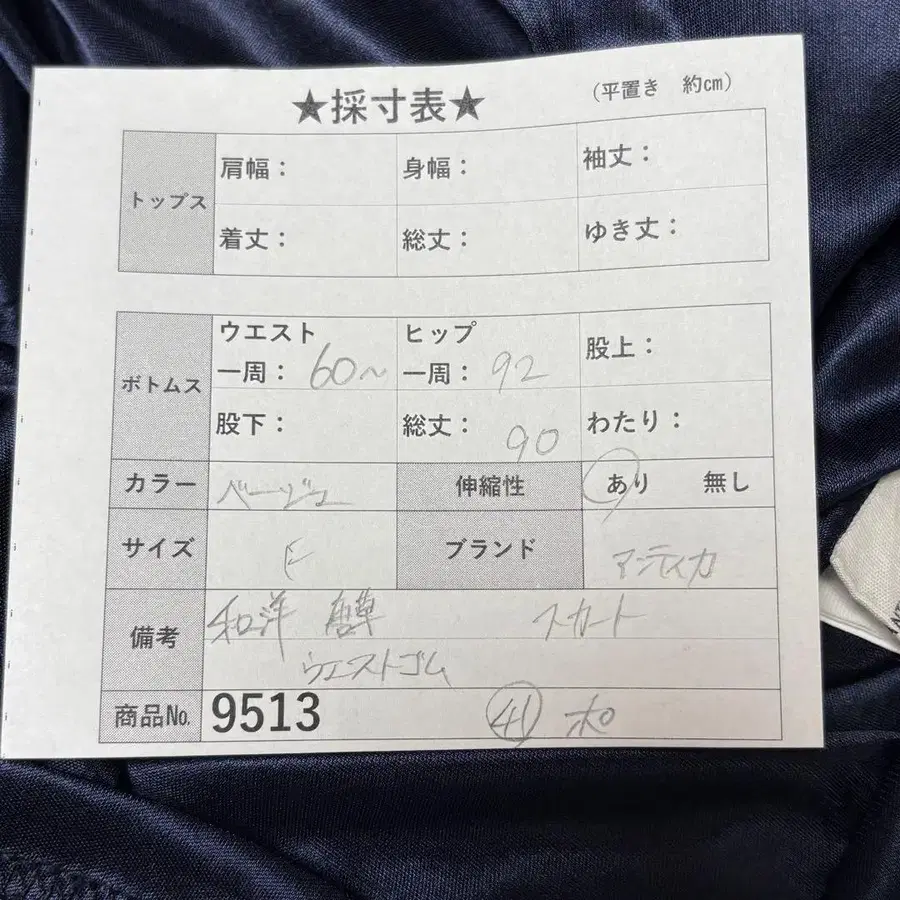 ★採寸表★ (平置き 約cm)
トップス 肩幅： 身幅： 袖丈：
着丈： 総丈： ゆき丈：
ボトムス ウエスト一周： 60～ ヒップ一周： 92 股上：
股下： 総丈： 90 わたり：
カラー ベージュ 伸縮性 あり 無し
サイズ F ブランド アンティカ
備考 和洋 唐草 スカート
ウエストゴム
商品No. 9513 41 ポ